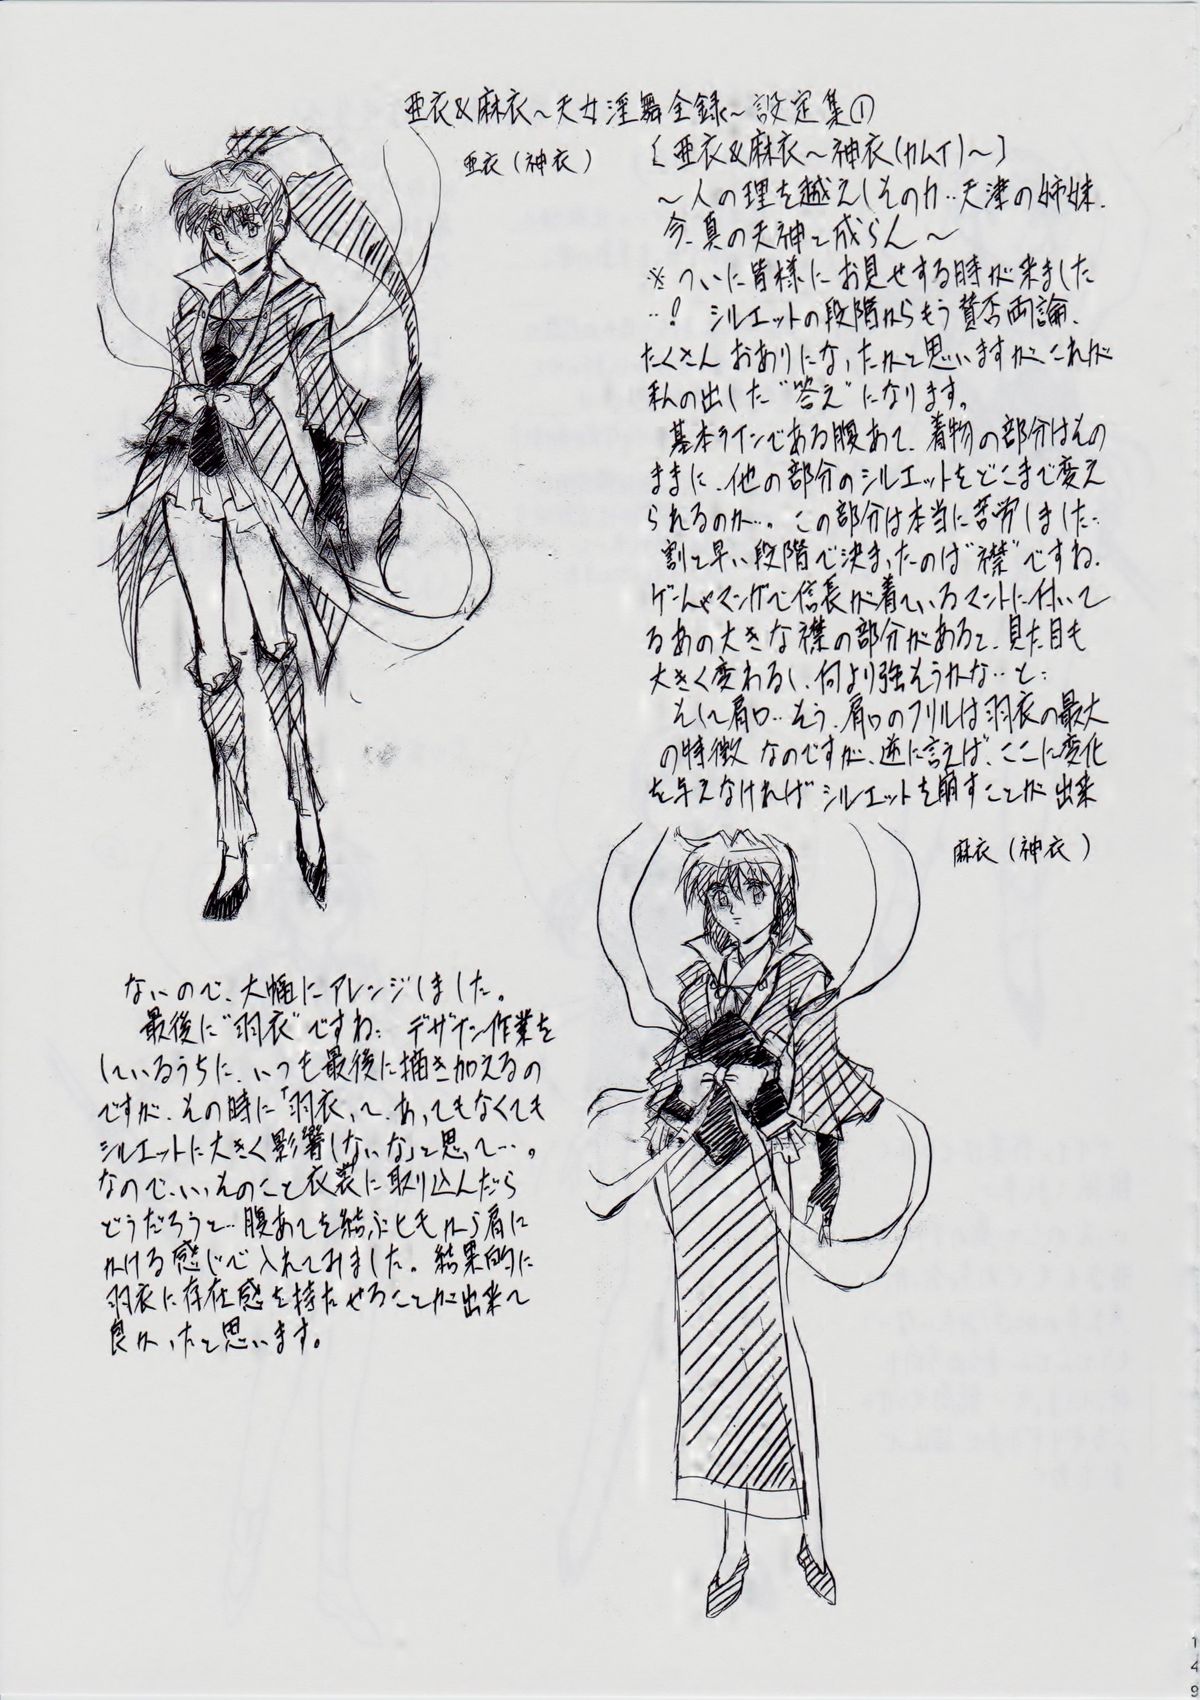 亜衣&麻衣～天女淫舞全録～設定集①
亜衣(神衣)
〔亜衣&麻衣～神衣(カムイ)～〕
～人の理を越えしその力…天津の姉妹、
今、真の天神と成らん～
※ついに皆様にお見せする時が来ました
…! シルエットの段階からもう賛否両論、
たくさんおありになったかと思いますがこれが
私の出した"答え"になります。
基本ラインである腹あて、着物の部分はその
ままに、他の部分のシルエットをどこまで変え
られるのか…。この部分は本当に苦労しました…
割と早い段階で決まったのは"襟"ですね、
ゲームやマンガで信長が着ているマントに付いて
るあの大きな襟の部分があると、見た目も
大きく変わるし、何より強そうかな…と…
そして肩口…そう、肩口のフリルは羽衣の最大
の特徴なのですが、逆に言えば、ここに変化
を与えなければシルエットを崩すことが出来
麻衣(神衣)
ないので、大幅にアレンジしました。
最後に"羽衣"ですね… デザイン作業を
しているうちに、いつも最後に描き加えるの
ですが、その時に「羽衣って、あってもなくても
シルエットに大きく影響しないな」と思って…。
なので、いっそのこと衣装に取り込んだら
どうだろうと…腹あてを結ぶヒモから肩に
かける感じで入れてみました。結果的に
羽衣に存在感を持たせることが出来て
良かったと思います。
149